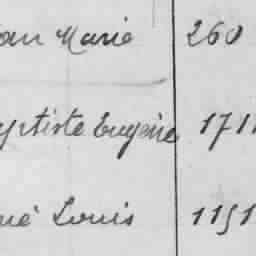 ean Marie 260
aptiste Eugène 171
né Louis 1151